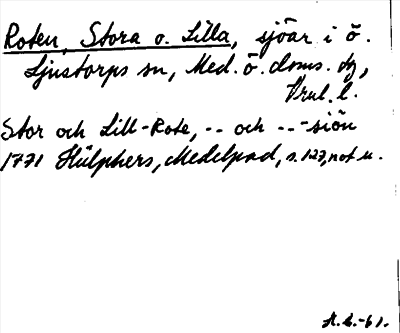 Roten, Stora o. Lilla, sjöar i ö.
Ljustorps sn, Med. ö. doms. dg,
Vrul. l.
Stor och Lill-Rote, -- och -- -siön
1771 Hülphers, Medelpad, s. 127, not u.
H. L. -61.